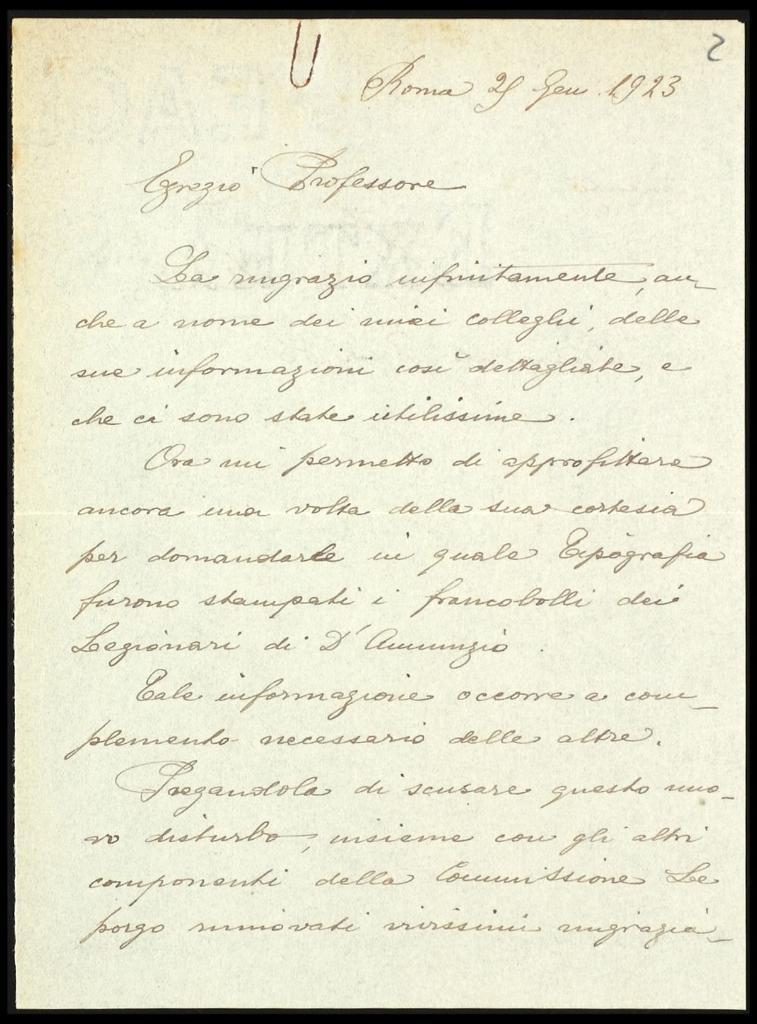 2
Roma 25 Gen. 1923
Egregio Professore
La ringrazio infinitamente, an-
che a nome dei miei colleghi, delle
sue informazioni così dettagliate, e
che ci sono state utilissime.
Ora mi permetto di approfittare
ancora una volta della sua cortesia
per domandarle in quale Tipografia
furono stampati i francobolli dei
Legionari di D'Annunzio.
Tale informazione occorre a com-
plemento necessario delle altre.
Pregandola di scusare questo nuo-
vo disturbo, insieme con gli altri
componenti della Commissione Le
porgo rinnovati vivissimi ringrazia-